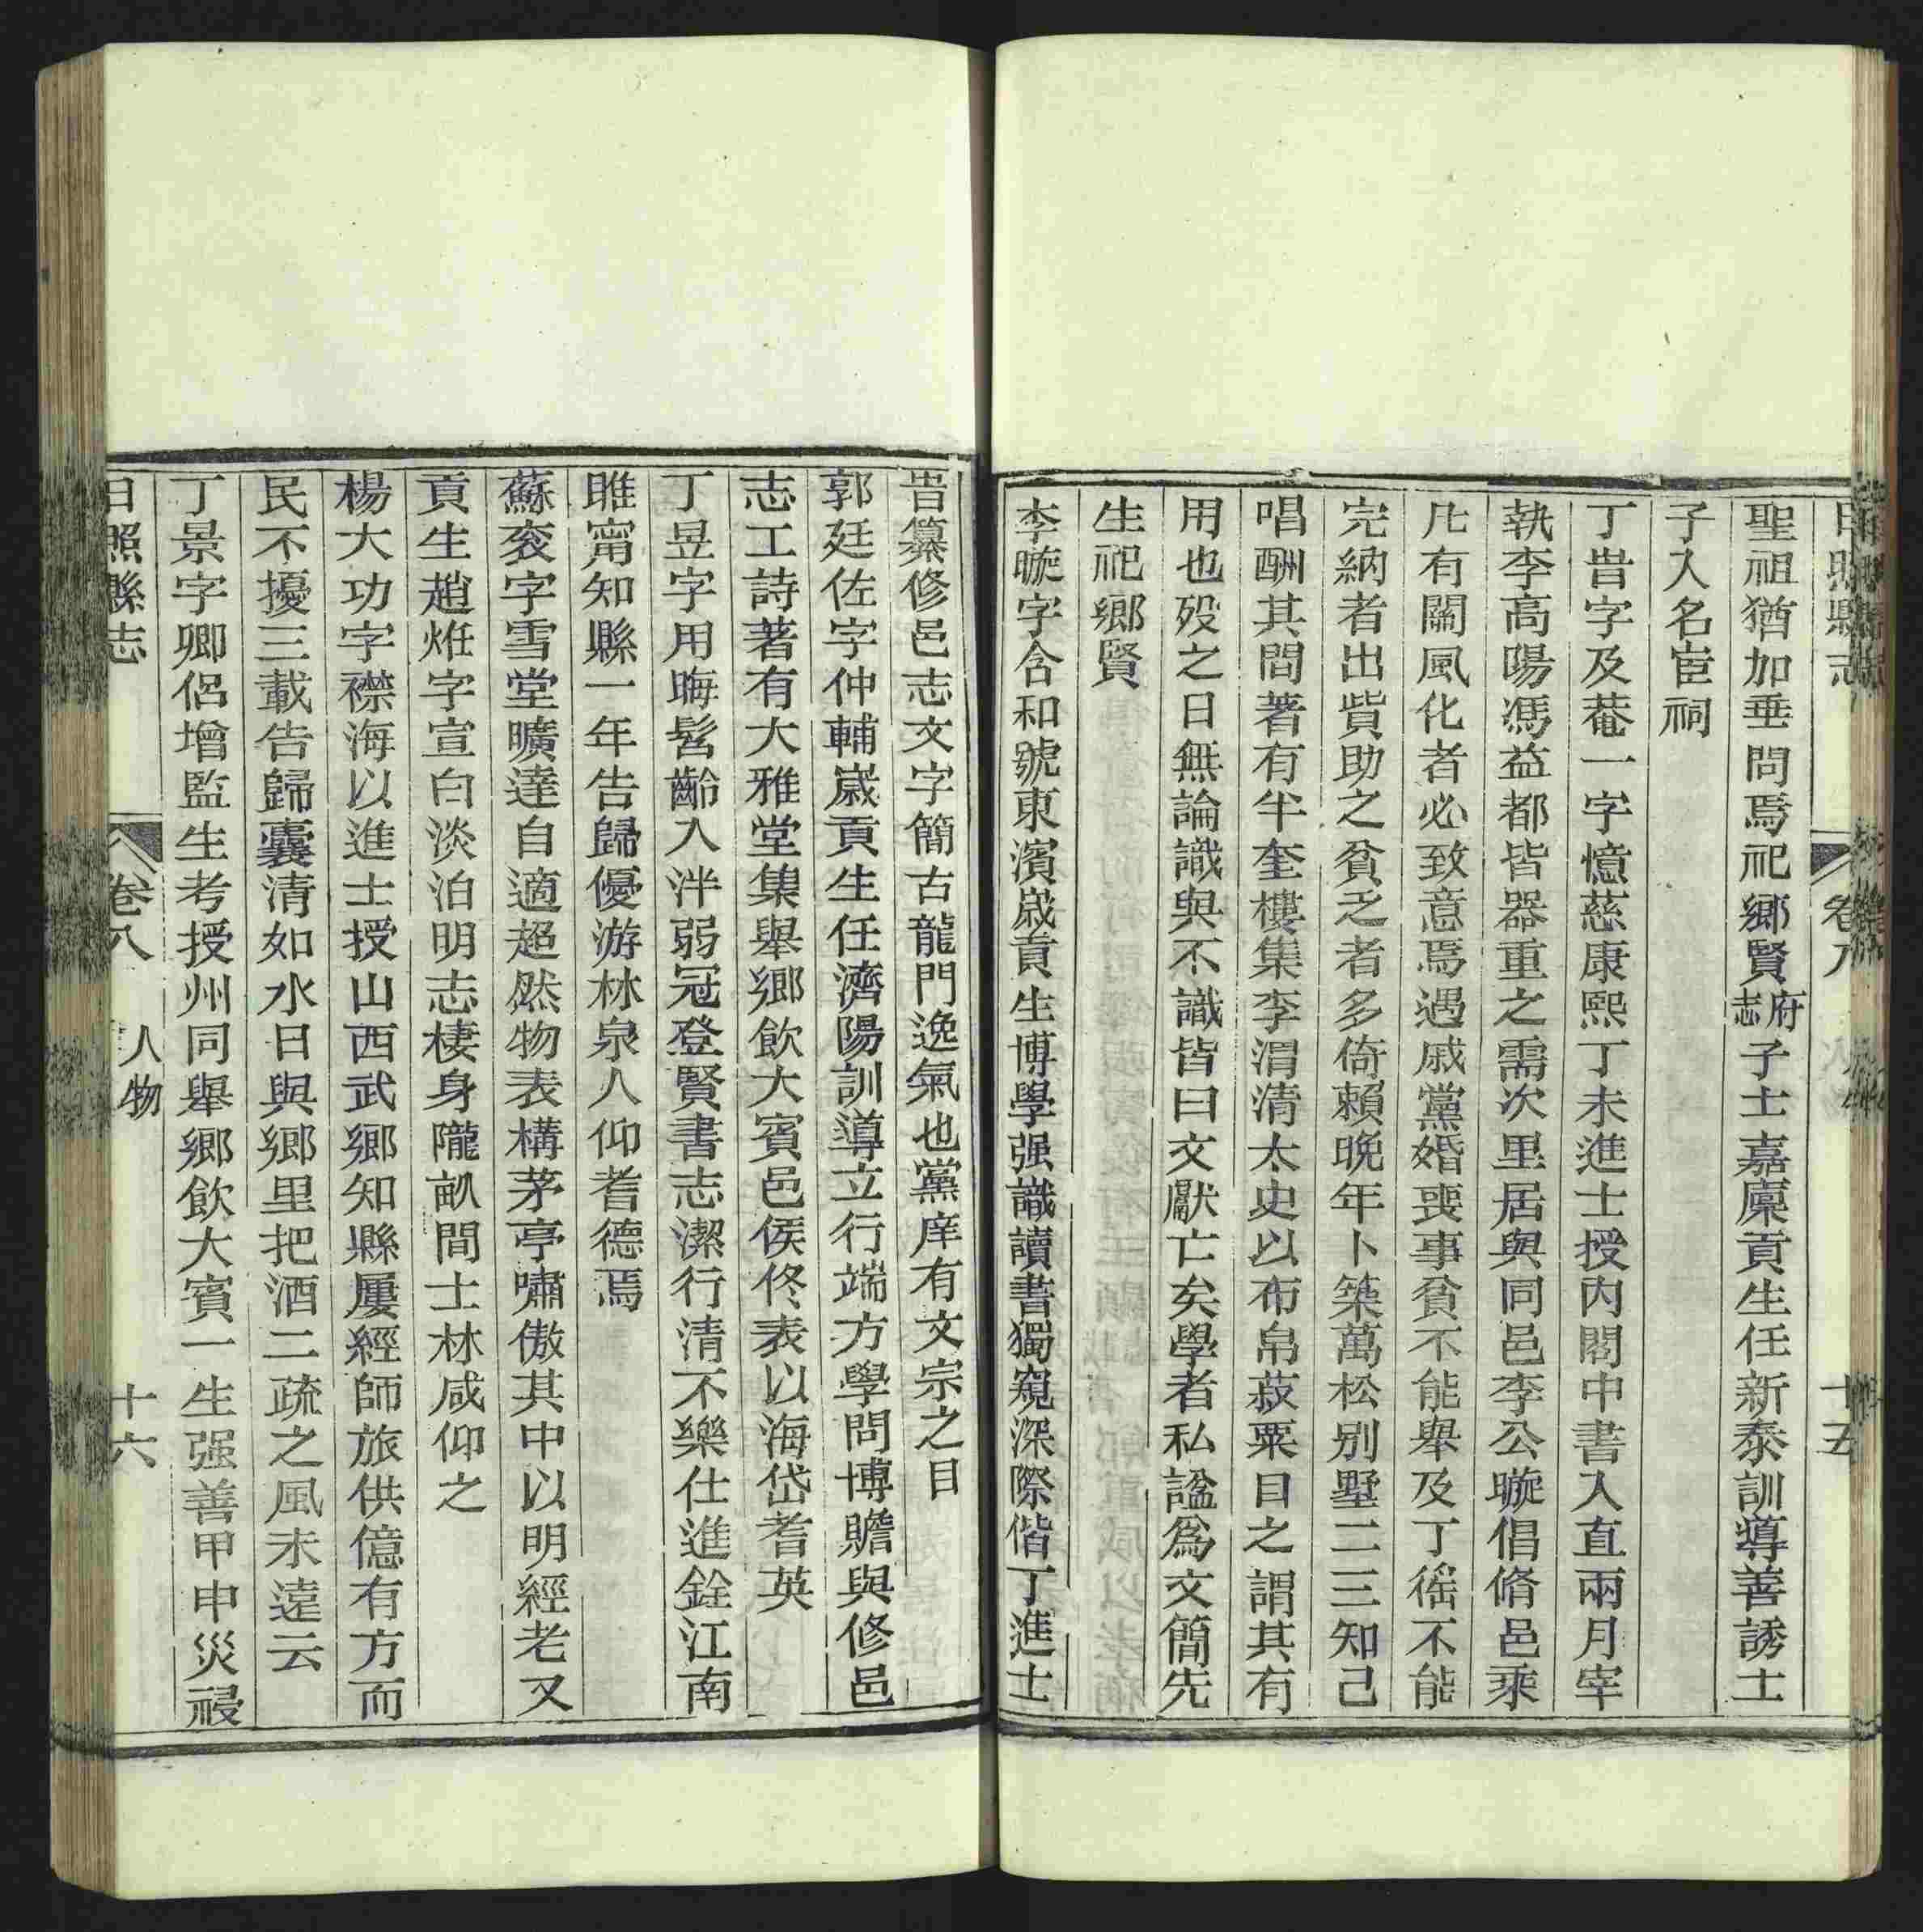 日照縣志 卷八 十五
聖祖猶加垂問焉祀鄉賢府志子士嘉廩貢生任新泰訓導善誘士
子入名宦祠
丁峕字及菴一字憶慈康熙丁未進士授內閣中書入直兩月宰
執李高陽馮益都皆器重之需次里居與同邑李公暶倡脩邑乘
凡有關風化者必致意焉遇戚黨婚喪事貧不能舉及丁徭不能
完納者出貲助之貧乏者多倚賴晚年卜築萬松別墅二三知己
唱酬其間著有半奎樓集李渭清太史以布帛菽粟目之謂其有
用也歿之日無論識與不識皆曰文獻亡矣學者私諡爲文簡先
生祀鄉賢
李暶字含和號東濱歲貢生博學强識讀書獨窺深際偕丁進士
峕纂修邑志文字簡古龍門逸氣也黨庠有文宗之目
郭廷佐字仲輔歲貢生任濟陽訓導立行端方學問博贍與修邑
志工詩著有大雅堂集舉鄉飲大賓邑侯佟表以海岱耆英
丁昱字用晦髫齡入泮弱冠登賢書志潔行清不樂仕進銓江南
睢甯知縣一年告歸優游林泉人仰耆德焉
蘇袞字雪堂曠達自適超然物表構茅亭嘯傲其中以明經老又
貢生趙烶字宣白淡泊明志棲身隴畝間士林咸仰之
楊大功字襟海以進士授山西武鄉知縣屢經師旅供億有方而
民不擾三載告歸囊清如水日與鄉里把酒二疏之風未遠云
丁景字卿侶增監生考授州同舉鄉飲大賓一生强善甲申災祲
日照縣志 卷八 人物 十六